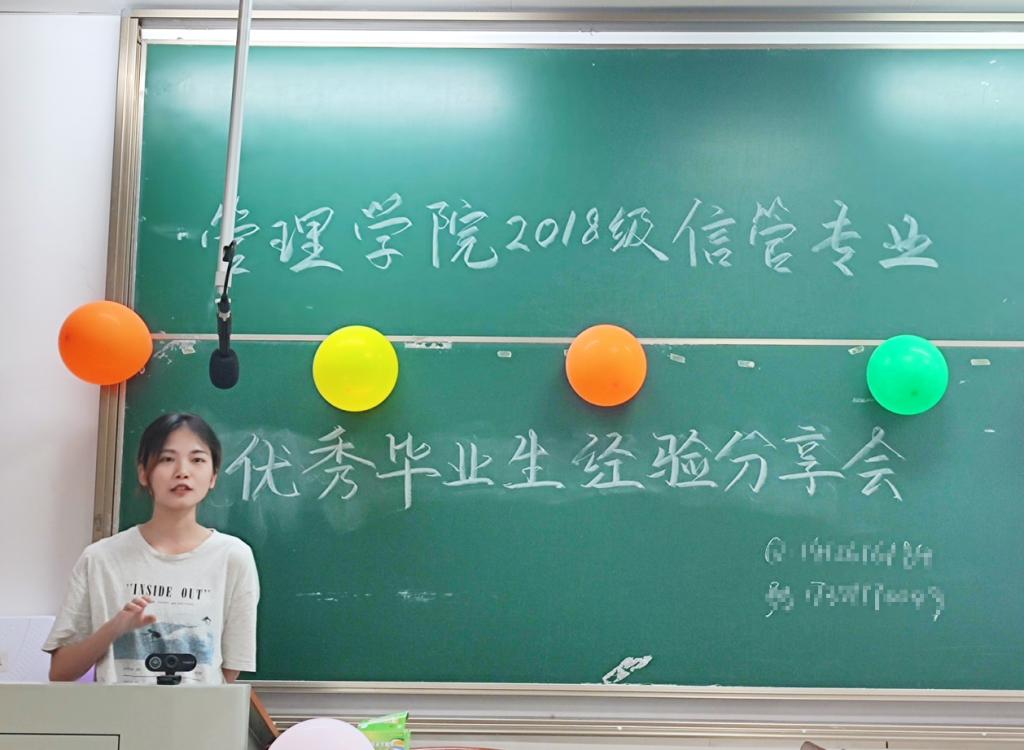 管理学院2018级信管专业
优秀毕业生经验分享会
"INSIDE OUT"